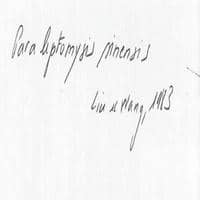 Paraleptomysis sinensis
Liu & Wang, 1983